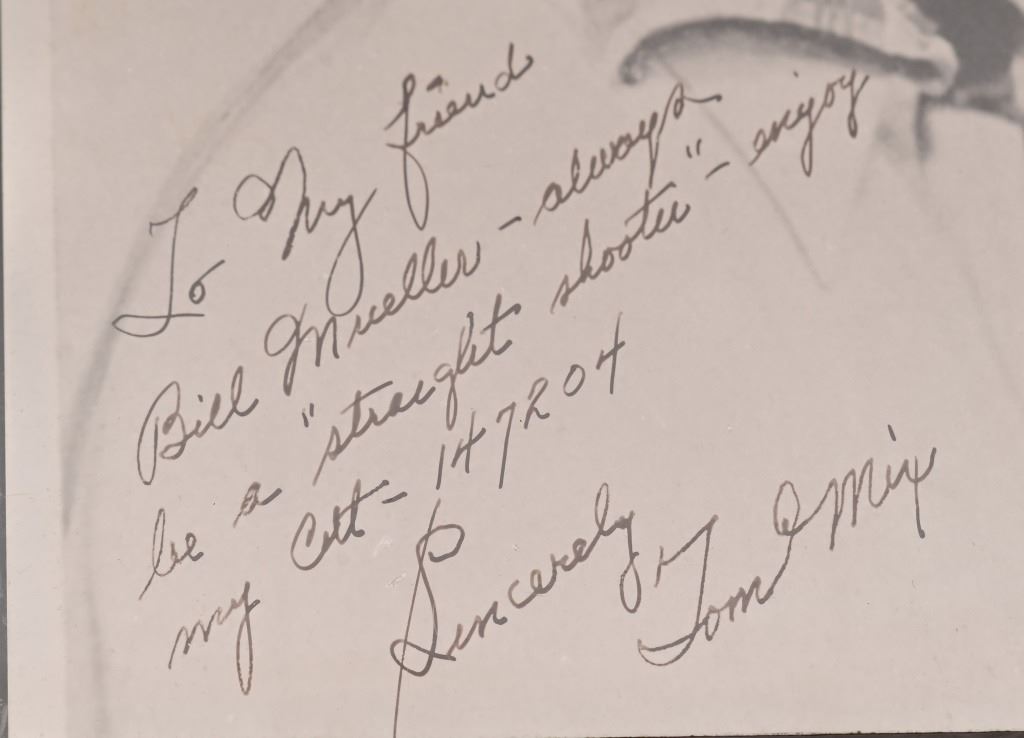 To My friend
Bill Mueller - always
be a "straight shooter" - enjoy
my Colt - 147204
Sincerely
Tom Mix